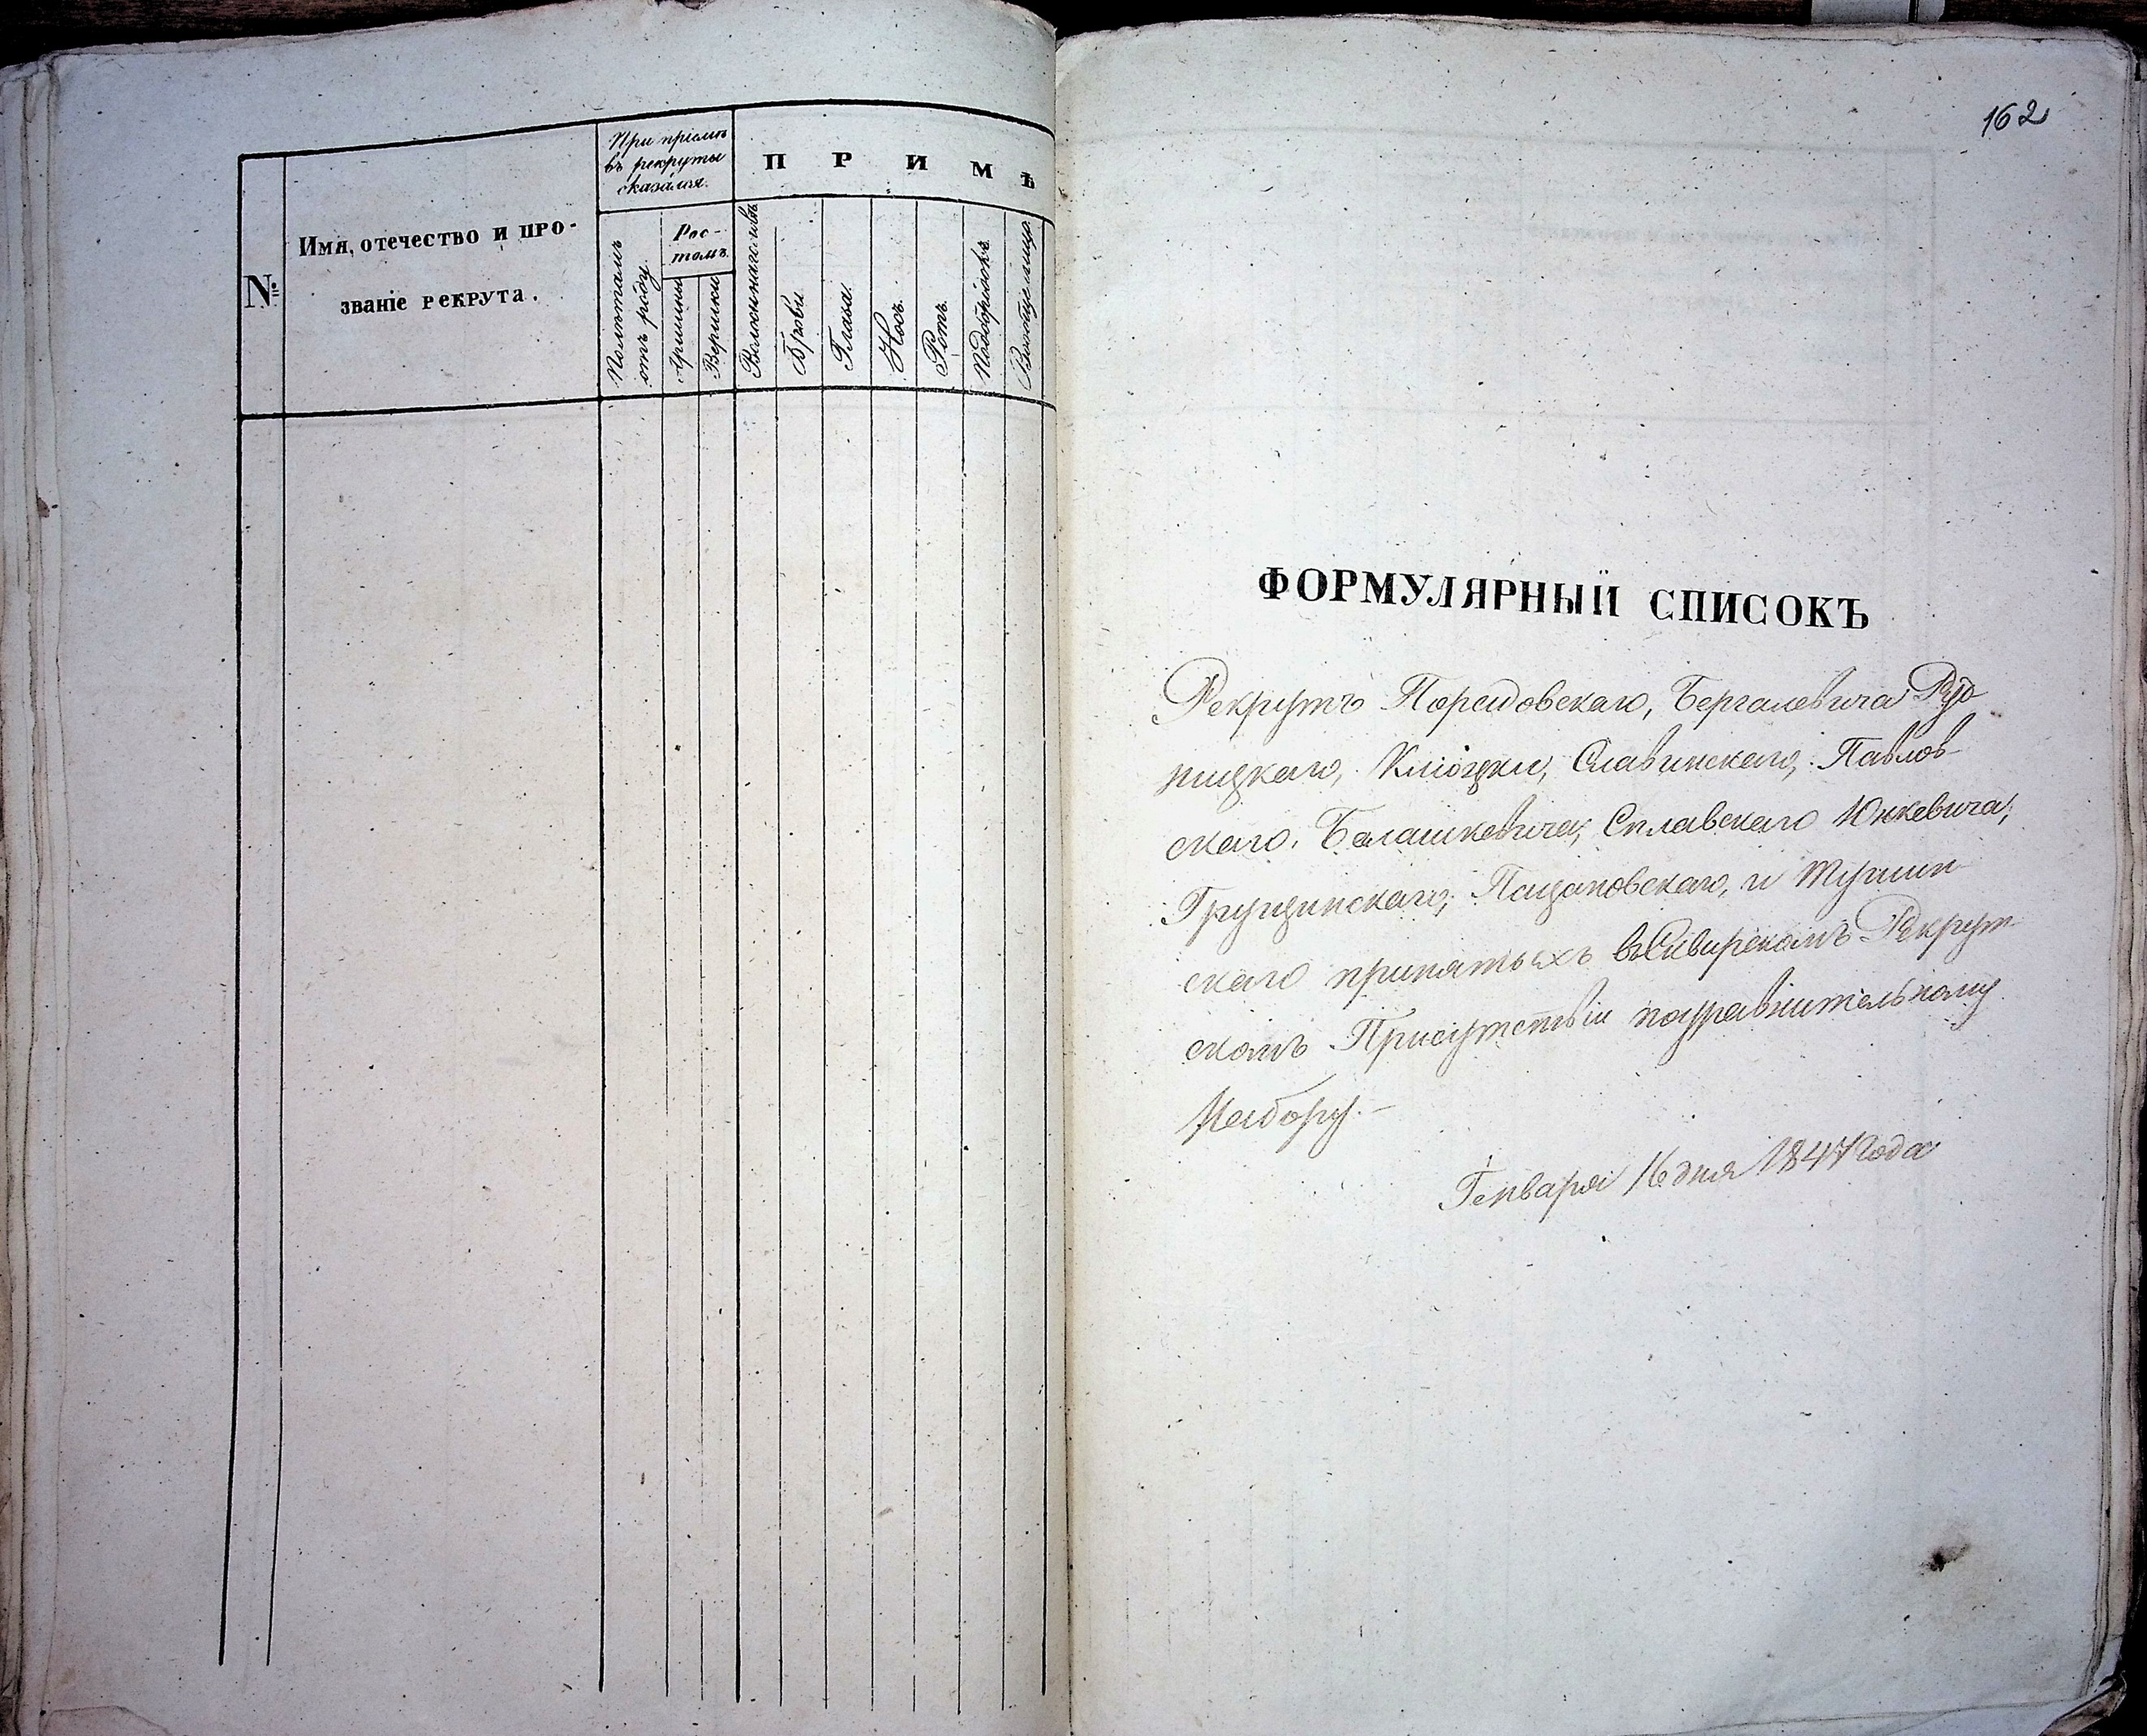 №
Имя, отечество и про-
званіе рекрута.
При пріемѣ
въ рекруты
оказался.
По лѣтамъ
отъ роду.
Рос-
томъ.
Аршины
Вершки
П Р И М Ѣ
Волосы на головѣ
Брови
Глаза
Носъ
Ротъ
Подбородокъ
Вообще лицо
162
ФОРМУЛЯРНЫЙ СПИСОКЪ
Рекрутъ Бергалевича Руд
ницкаго, Клюцки, Славинскаго, Павлов-
скаго, Балашкевича, Сплавскаго Юнкевича,
Грущинскаго, и
скаго принятыхъ въ Сквирскомъ Рекрут
скомъ Присутствіи по уравнительному
Набору.-
Генваря 16 дня 1847 года